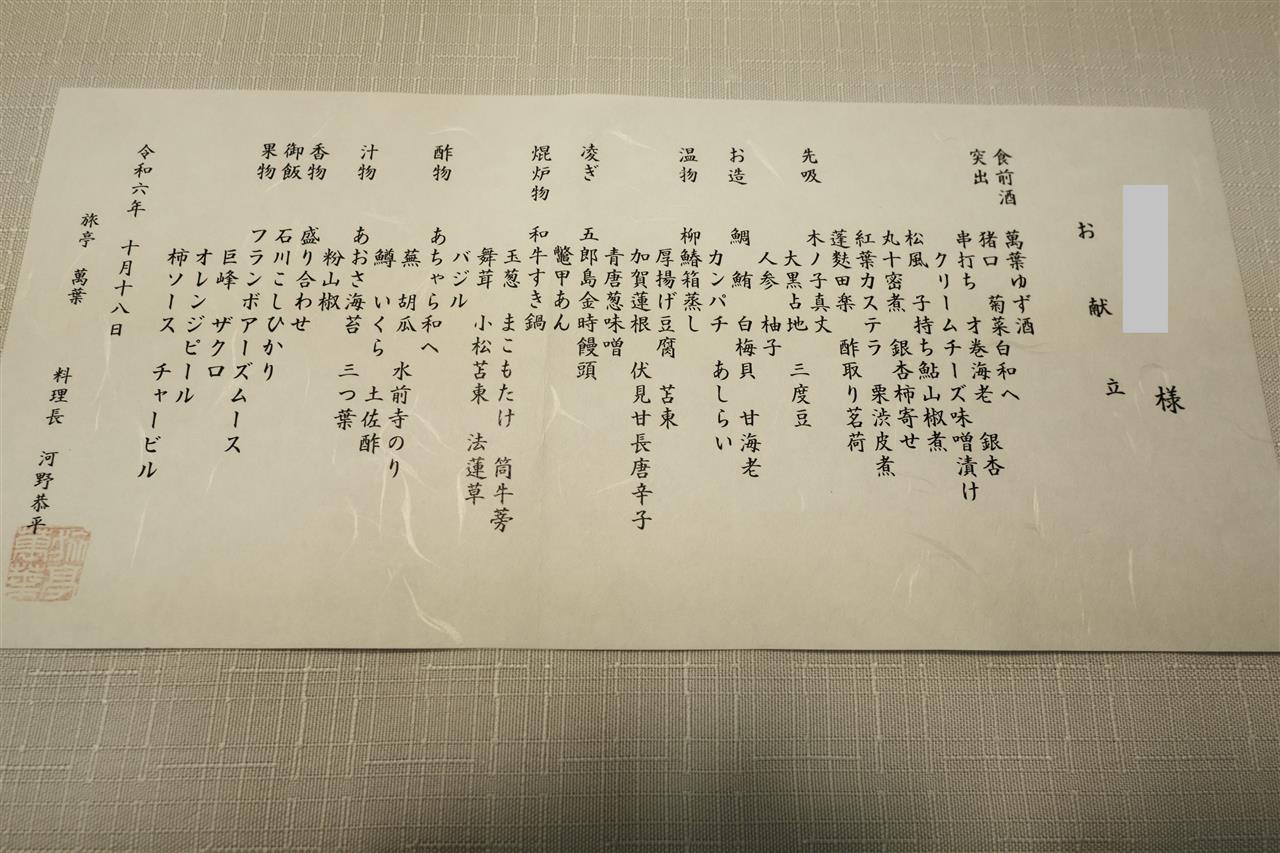 様
お献立
食前酒 萬葉ゆず酒
突出 猪口 菊菜白和へ
串打ち 才巻海老 銀杏
クリームチーズ味噌漬け
松風 子持ち鮎山椒煮
丸十密煮 銀杏柿寄せ
紅葉カステラ 栗渋皮煮
蓬麩田楽 酢取り茗荷
先吸 木ノ子真丈
大黒占地 三度豆
人参 柚子
お造 鯛 鮪 白梅貝 甘海老
カンパチ あしらい
温物 柳鰆箱蒸し
厚揚げ豆腐 苫東
加賀蓮根 伏見甘長唐辛子
青唐葱味噌
凌ぎ 五郎島金時饅頭
鼈甲あん
焜炉物 和牛すき鍋
玉葱 まこもたけ 筒牛蒡
舞茸 小松苫東 法蓮草
バジル
酢物 あちゃら和へ
蕪 胡瓜 水前寺のり
鱒 いくら 土佐酢
汁物 あおさ海苔 三つ葉
粉山椒
香物 盛り合わせ
御飯 石川こしひかり
果物 フランボアーズムース
巨峰 ザクロ
オレンジピール
柿ソース チャービル
令和六年 十月十八日
旅亭 萬葉
料理長 河野恭平
旅亭萬葉